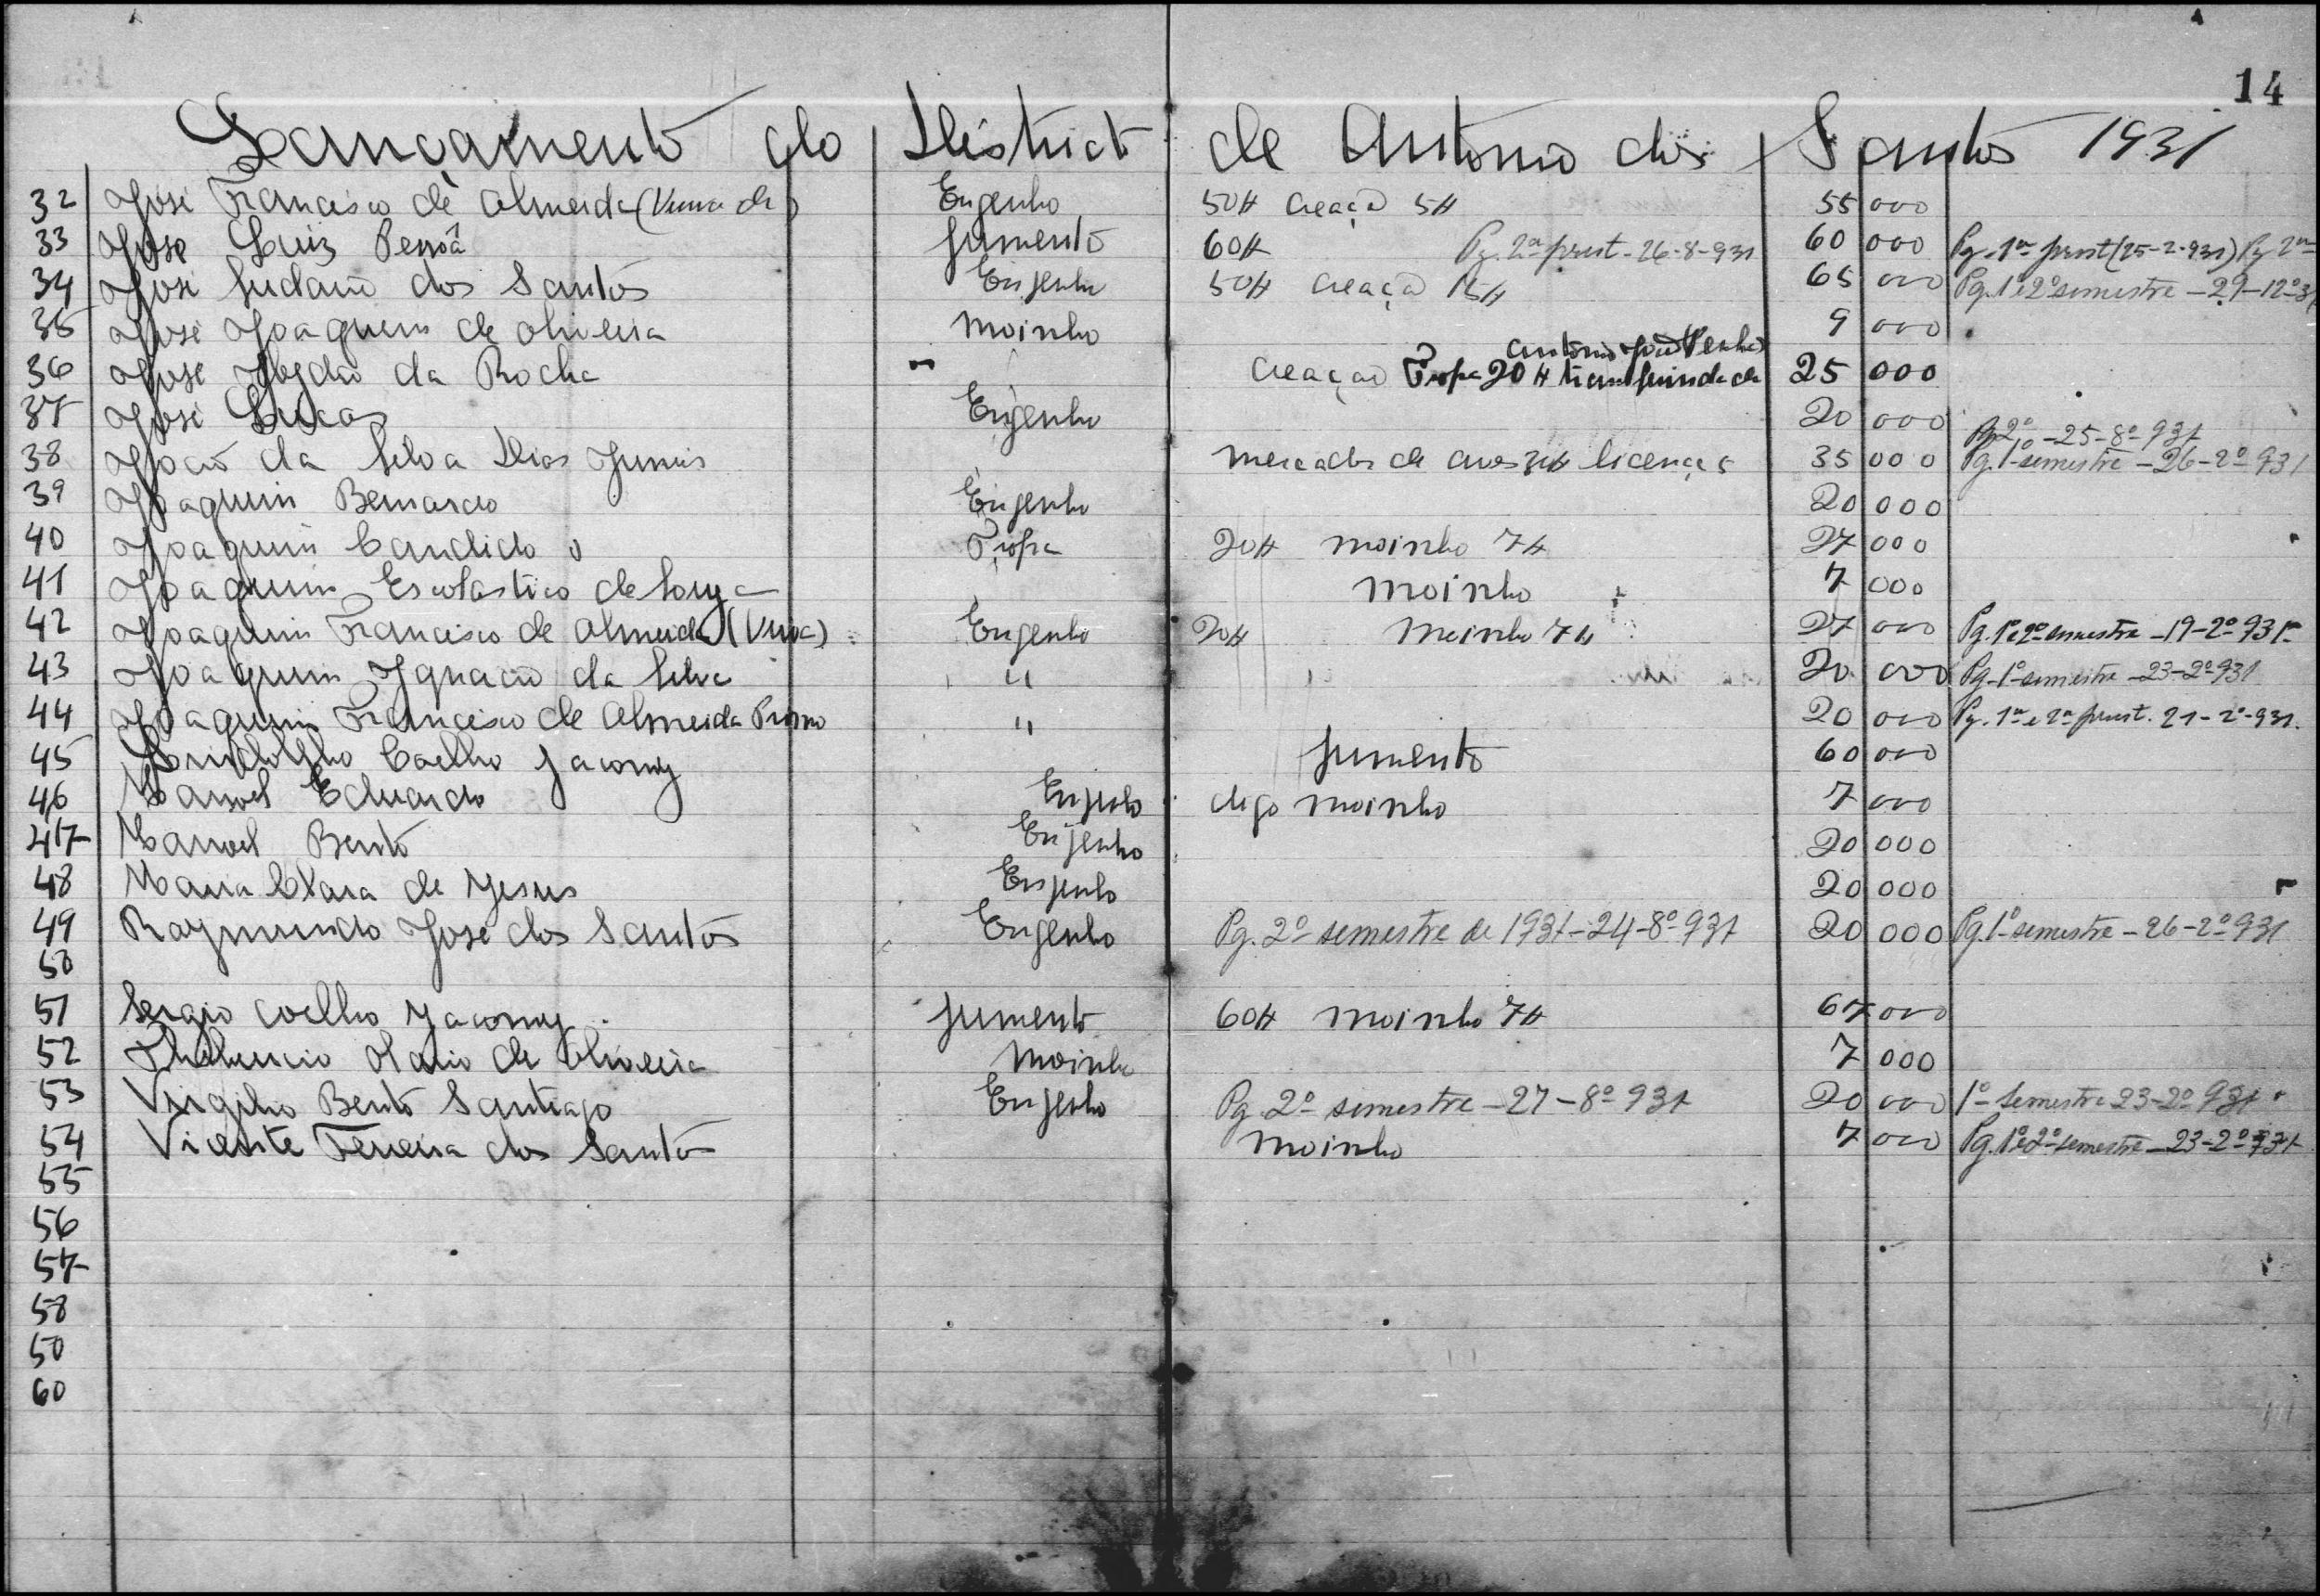 14
Lançamento do District de Antonio dos Santos 1931
32 José Francisco de Almeida (Viuva de) Engenho 50$ creação 5$ 55 000
33 José Luiz Pessôa Jumento 60$ Pg. 2ª prest. 26-8-931 60 000 Pg. 1ª prest (25-2-931) Pg 2ª
34 José dos Santos Engenho 50$ creação 15$ 65 000 Pg. 1º e 2º semestre - 29-12º 31
35 José Joaquim de Oliveira Moinho 9 000
Antonio José
36 José da Rocha " creação Tropa 20$ transferida de 25 000
37 José Lucas Engenho 20 000
Pg 2º - 25-8º 931
38 João da Silva Dias Junior mercador de licença 35 000 Pg. 1º semestre - 26-2º 931
39 Joaquim Bernardo Engenho 20 000
40 Joaquim Candido Tropa 20$ moinho 7$ 27 000
41 Joaquim Escolastico de Souza moinho 7 000
42 Joaquim Francisco de Almeida (Viuva) Engenho 20$ Moinho 7$ 27 000 Pg. 1º e 2º semestre - 19-2º 931
43 Joaquim Ignacio da Silva " 20 000 Pg. 1º semestre - 23-2º 931
44 Joaquim Francisco de Almeida Primo " 20 000 Pg. 1ª e 2ª prest. 21-2º-931.
45 Lindolpho Coelho Jacomy Jumento 60 000
46 Manoel Eduardo Engenho digo moinho 7 000
47 Manoel Bento Engenho 20 000
48 Maria Clara de Jesus Engenho 20 000
49 Raymundo José dos Santos Engenho Pg. 2º semestre de 1931 - 24-8º 931 20 000 Pg. 1º semestre - 26-2º 931
50
51 Sergio Coelho Jacomy Jumento 60$ moinho 7$ 67 000
52 de Oliveira Moinho 7 000
53 Virgilio Bento Santiago Engenho Pg. 2º semestre - 27-8º 931 20 000 1º semestre 23-2º 931
54 Vicente Ferreira dos Santos Moinho 7 000 Pg. 1º e 2º semestre - 23-2º 931
55
56
57
58
50
60